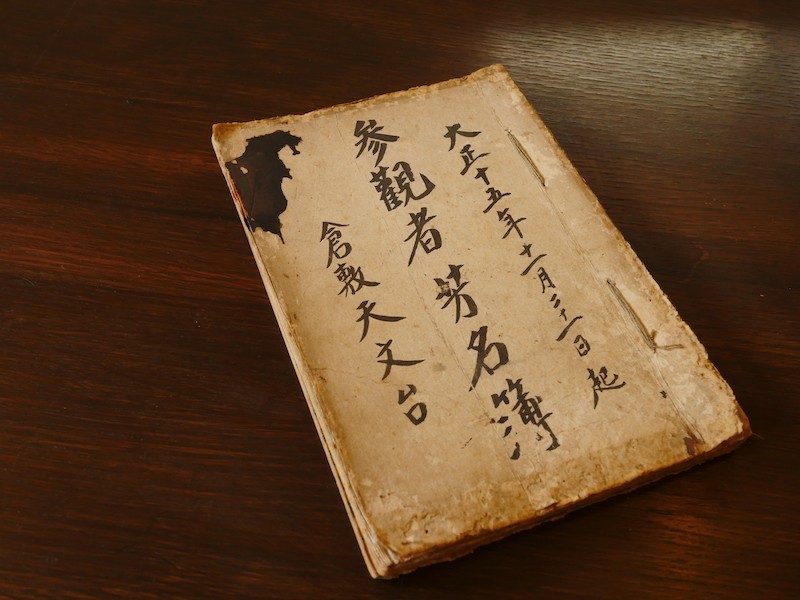 大正十五年十一月二十一日起
参觀者芳名簿
倉敷天文台